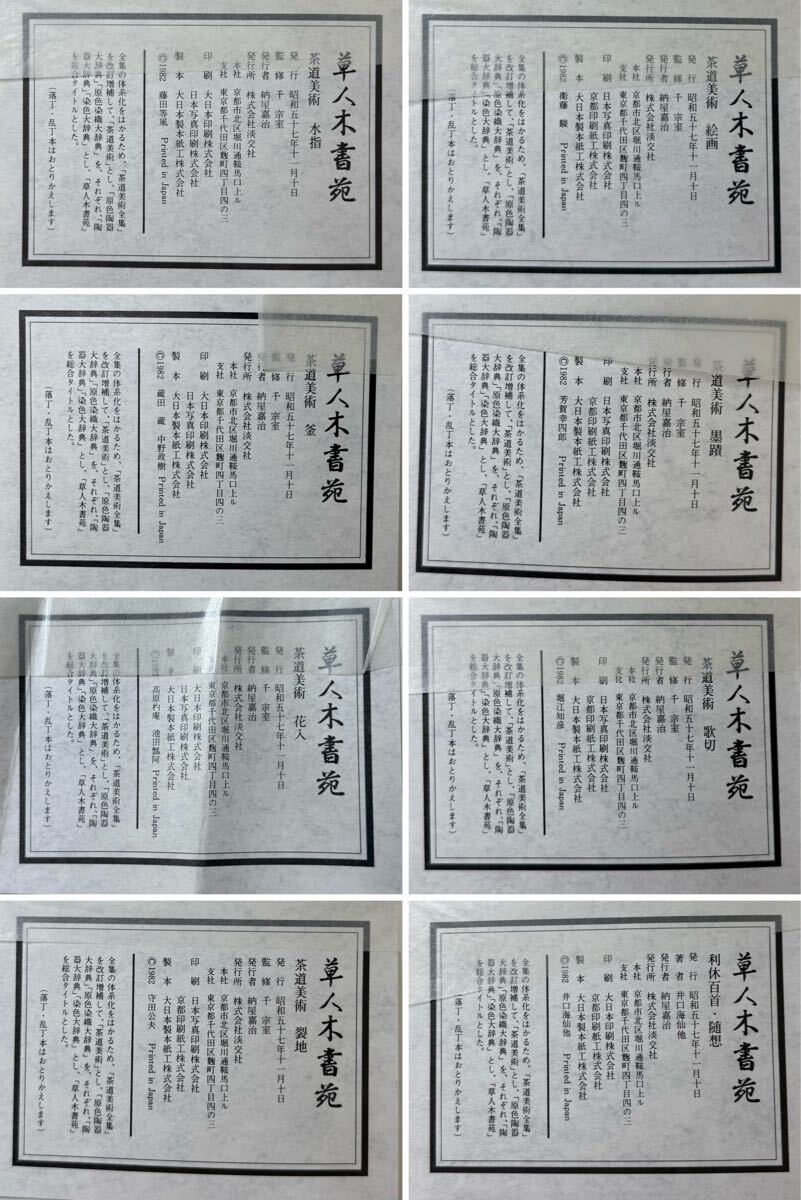 草人木書苑
茶道美術 水指
発行 昭和五十七年十一月十日
監修 千 宗室
発行者 納屋嘉治
発行所 株式会社淡交社
本社 京都市北区堀川通鞍馬口上ル
支社 東京都千代田区麹町四丁目四の三
印刷 大日本印刷株式会社
日本写真印刷株式会社
製本 大日本製本紙工株式会社
©1982 藤田等風 Printed in Japan
全集の体系化をはかるため、「茶道美術全集」
を改訂増補して、「茶道美術」とし、「原色陶器
大辞典」「原色染織大辞典」を、それぞれ、「陶
器大辞典」「染色大辞典」とし、「草人木書苑」
を総合タイトルとした。
（落丁・乱丁本はおとりかえします）
草人木書苑
茶道美術 絵画
発行 昭和五十七年十一月十日
監修 千 宗室
発行者 納屋嘉治
発行所 株式会社淡交社
本社 京都市北区堀川通鞍馬口上ル
支社 東京都千代田区麹町四丁目四の三
印刷 日本写真印刷株式会社
京都印刷株式会社
製本 大日本製本紙工株式会社
©1982 衛藤 駿 Printed in Japan
全集の体系化をはかるため、「茶道美術全集」
を改訂増補して、「茶道美術」とし、「原色陶器
大辞典」「原色染織大辞典」を、それぞれ、「陶
器大辞典」「染色大辞典」とし、「草人木書苑」
を総合タイトルとした。
（落丁・乱丁本はおとりかえします）
草人木書苑
茶道美術 釜
発行 昭和五十七年十一月十日
監修 千 宗室
発行者 納屋嘉治
発行所 株式会社淡交社
本社 京都市北区堀川通鞍馬口上ル
支社 東京都千代田区麹町四丁目四の三
印刷 大日本印刷株式会社
日本写真印刷株式会社
製本 大日本製本紙工株式会社
©1982 蔵田 蔵 中野政樹 Printed in Japan
全集の体系化をはかるため、「茶道美術全集」
を改訂増補して、「茶道美術」とし、「原色陶器
大辞典」「原色染織大辞典」を、それぞれ、「陶
器大辞典」「染色大辞典」とし、「草人木書苑」
を総合タイトルとした。
（落丁・乱丁本はおとりかえします）
草人木書苑
道美術 墨蹟
発行 昭和五十七年十一月十日
監修 千 宗室
発行者 納屋嘉治
発行所 株式会社淡交社
本社 京都市北区堀川通鞍馬口上ル
支社 東京都千代田区麹町四丁目四の三
印刷 日本写真印刷株式会社
京都印刷株式会社
製本 大日本製本紙工株式会社
©1982 芳賀幸四郎 Printed in Japan
全集の体系化をはかるため、「茶道美術全集」
を改訂増補して、「茶道美術」とし、「原色陶器
大辞典」「原色染織大辞典」を、それぞれ、「陶
器大辞典」「染色大辞典」とし、「草人木書苑」
を総合タイトルとした。
（落丁・乱丁本はおとりかえします）
草人木書苑
茶道美術 花入
発行 昭和五十七年十一月十日
監修 千 宗室
発行者 納屋嘉治
発行所 株式会社淡交社
本社 京都市北区堀川通鞍馬口上ル
支社 東京都千代田区麹町四丁目四の三
印刷 大日本印刷株式会社
日本写真印刷株式会社
製本 大日本製本紙工株式会社
©1982 高原杓庵 池田瓢阿 Printed in Japan
全集の体系化をはかるため、「茶道美術全集」
を改訂増補して、「茶道美術」とし、「原色陶器
大辞典」「原色染織大辞典」を、それぞれ、「陶
器大辞典」「染色大辞典」とし、「草人木書苑」
を総合タイトルとした。
（落丁・乱丁本はおとりかえします）
草人木書苑
茶道美術 歌切
発行 昭和五十七年十一月十日
監修 千 宗室
発行者 納屋嘉治
発行所 株式会社淡交社
本社 京都市北区堀川通鞍馬口上ル
支社 東京都千代田区麹町四丁目四の三
印刷 日本写真印刷株式会社
京都印刷株式会社
製本 大日本製本紙工株式会社
©1982 堀江知彦 Printed in Japan
全集の体系化をはかるため、「茶道美術全集」
を改訂増補して、「茶道美術」とし、「原色陶器
大辞典」「原色染織大辞典」を、それぞれ、「陶
器大辞典」「染色大辞典」とし、「草人木書苑」
を総合タイトルとした。
（落丁・乱丁本はおとりかえします）
草人木書苑
茶道美術 裂地
発行 昭和五十七年十一月十日
監修 千 宗室
発行者 納屋嘉治
発行所 株式会社淡交社
本社 京都市北区堀川通鞍馬口上ル
支社 東京都千代田区麹町四丁目四の三
印刷 日本写真印刷株式会社
京都印刷株式会社
製本 大日本製本紙工株式会社
©1982 守田公夫 Printed in Japan
全集の体系化をはかるため、「茶道美術全集」
を改訂増補して、「茶道美術」とし、「原色陶器
大辞典」「原色染織大辞典」を、それぞれ、「陶
器大辞典」「染色大辞典」とし、「草人木書苑」
を総合タイトルとした。
（落丁・乱丁本はおとりかえします）
草人木書苑
利休百首・随想
発行 昭和五十七年十一月十日
著者 井口海仙他
発行者 納屋嘉治
発行所 株式会社淡交社
本社 京都市北区堀川通鞍馬口上ル
支社 東京都千代田区麹町四丁目四の三
印刷 大日本印刷株式会社
京都印刷株式会社
製本 大日本製本紙工株式会社
©1982 井口海仙他 Printed in Japan
全集の体系化をはかるため、「茶道美術全集」
を改訂増補して、「茶道美術」とし、「原色陶器
大辞典」「原色染織大辞典」を、それぞれ、「陶
器大辞典」「染色大辞典」とし、「草人木書苑」
を総合タイトルとした。
（落丁・乱丁本はおとりかえします）